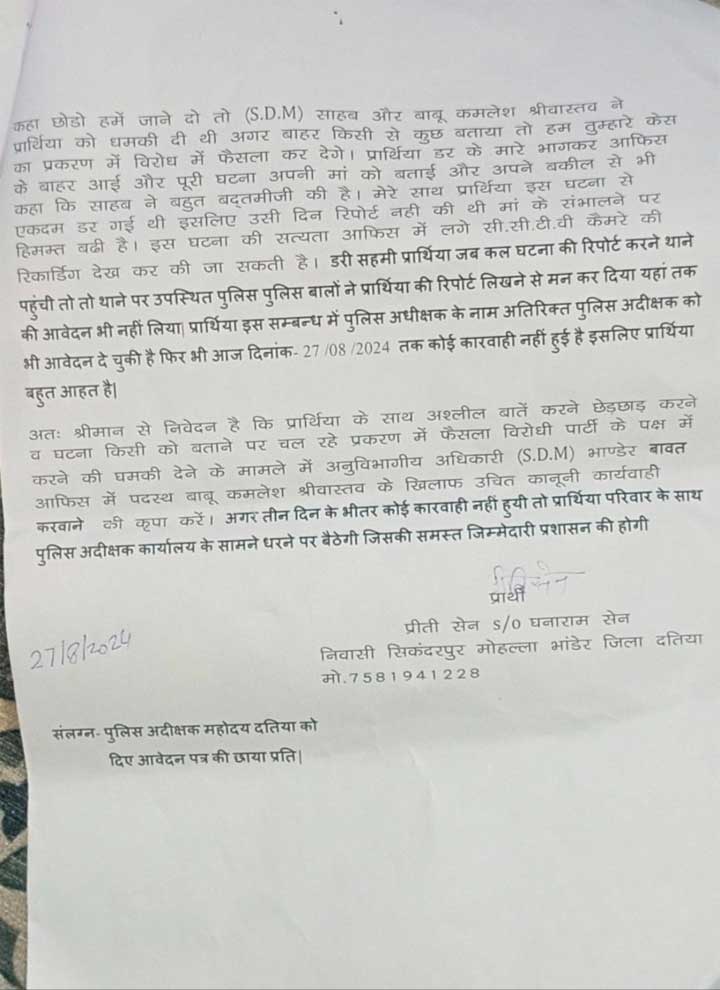 कहा छोडो हमें जाने दो तो (S.D.M) साहब और बाबू कमलेश श्रीवास्तव ने
प्रार्थिया को धमकी दी थी अगर बाहर किसी से कुछ बताया तो हम तुम्हारे केस
का प्रकरण में विरोध में फैसला कर देगे। प्रार्थिया डर के मारे भागकर आफिस
के बाहर आई और पूरी घटना अपनी मां को बताई और अपने बकील से भी
कहा कि साहब ने बहुत बद्तमीजी की है। मेरे साथ प्रार्थिया इस घटना से
एकदम डर गई थी इसलिए उसी दिन रिपोर्ट नही की थी मां के संभालने पर
हिमम्त बढी है। इस घटना की सत्यता आफिस में लगे सी.सी.टी.वी कैमरे की
रिकार्डिग देख कर की जा सकती है। डरी सहमी प्रार्थिया जब कल घटना की रिपोर्ट करने थाने
पहुंची तो तो थाने पर उपस्थित पुलिस पुलिस बालों ने प्रार्थिया की रिपोर्ट लिखने से मन कर दिया यहां तक
की आवेदन भी नहीं लिया| प्रार्थिया इस सम्बन्ध में पुलिस अधीक्षक के नाम अतिरिक्त पुलिस अदीक्षक को
भी आवेदन दे चुकी है फिर भी आज दिनांक- 27 /08 /2024 तक कोई कारवाही नहीं हुई है इसलिए प्रार्थिया
बहुत आहत है|
अतः श्रीमान से निवेदन है कि प्रार्थिया के साथ अश्लील बातें करने छेड़छाड़ करने
व घटना किसी को बताने पर चल रहे प्रकरण में फैसला विरोधी पार्टी के पक्ष में
करने की घमकी देने के मामले में अनुविभागीय अधिकारी (S.D.M) भाण्डेर बावत
आफिस में पदस्थ बाबू कमलेश श्रीवास्तव के खिलाफ उचित कानूनी कार्यवाही
करवाने की कृपा करें। अगर तीन दिन के भीतर कोई कारवाही नहीं हुयी तो प्रार्थिया परिवार के साथ
पुलिस अदीक्षक कार्यालय के सामने धरने पर बैठेगी जिसकी समस्त जिम्मेदारी प्रशासन की होगी
प्रार्थी
प्रीती सेन S/O घनाराम सेन
27/8/2024
निवासी सिकंदरपुर मोहल्ला भांडेर जिला दतिया
मो.7581941228
संलग्न- पुलिस अदीक्षक महोदय दतिया को
दिए आवेदन पत्र की छाया प्रति|